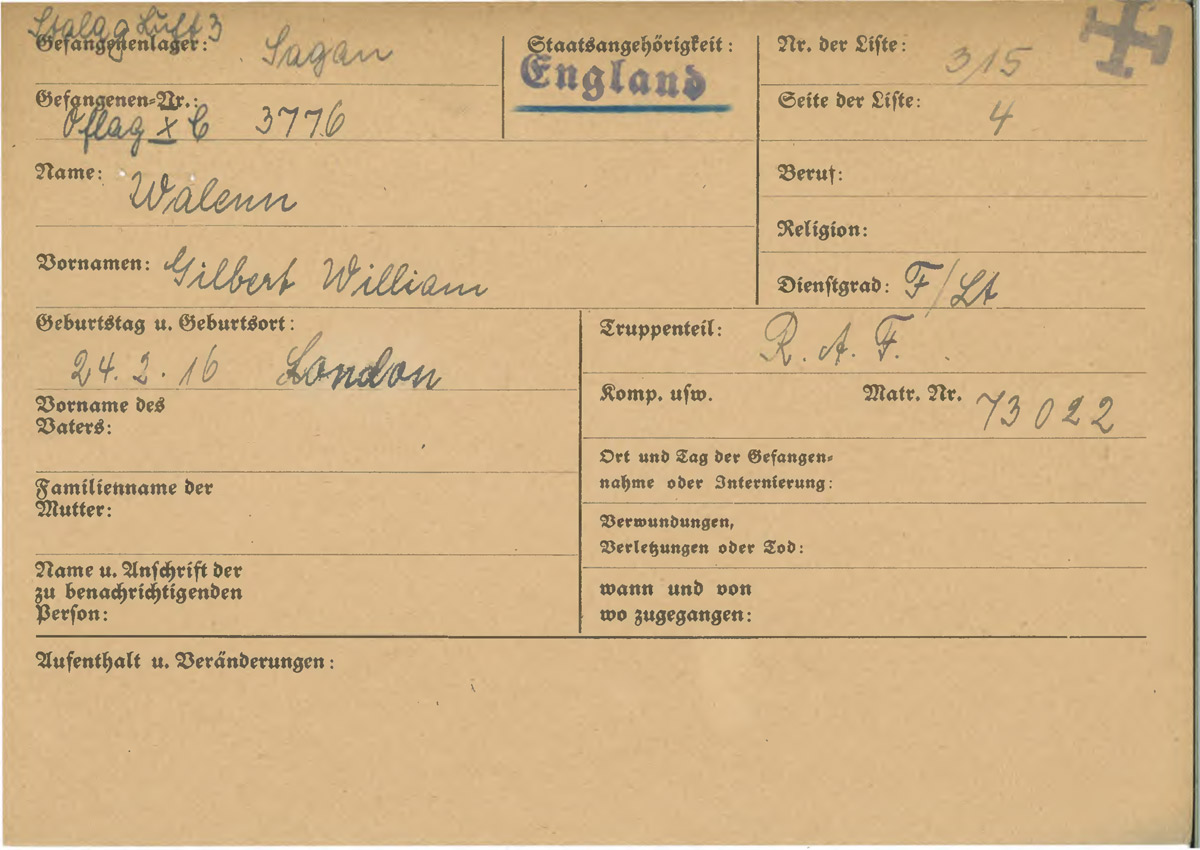 Stalag Luft 3
Gefangenenlager: Sagan
Gefangenen-Nr.:
Oflag X C 3776
Name: Walenn
Vornamen: Gilbert William
Staatsangehörigkeit:
England
Nr. der Liste: 315
Seite der Liste: 4
Beruf:
Religion:
Dienstgrad: F/Lt
Geburtstag u. Geburtsort:
24. 2. 16 London
Vorname des
Vaters:
Familienname der
Mutter:
Name u. Anschrift der
zu benachrichtigenden
Person:
Truppenteil: R. A. F.
Komp. usw. Matr. Nr. 73022
Ort und Tag der Gefangen-
nahme oder Internierung:
Verwundungen,
Verletzungen oder Tod:
wann und von
wo zugegangen:
Aufenthalt u. Veränderungen: